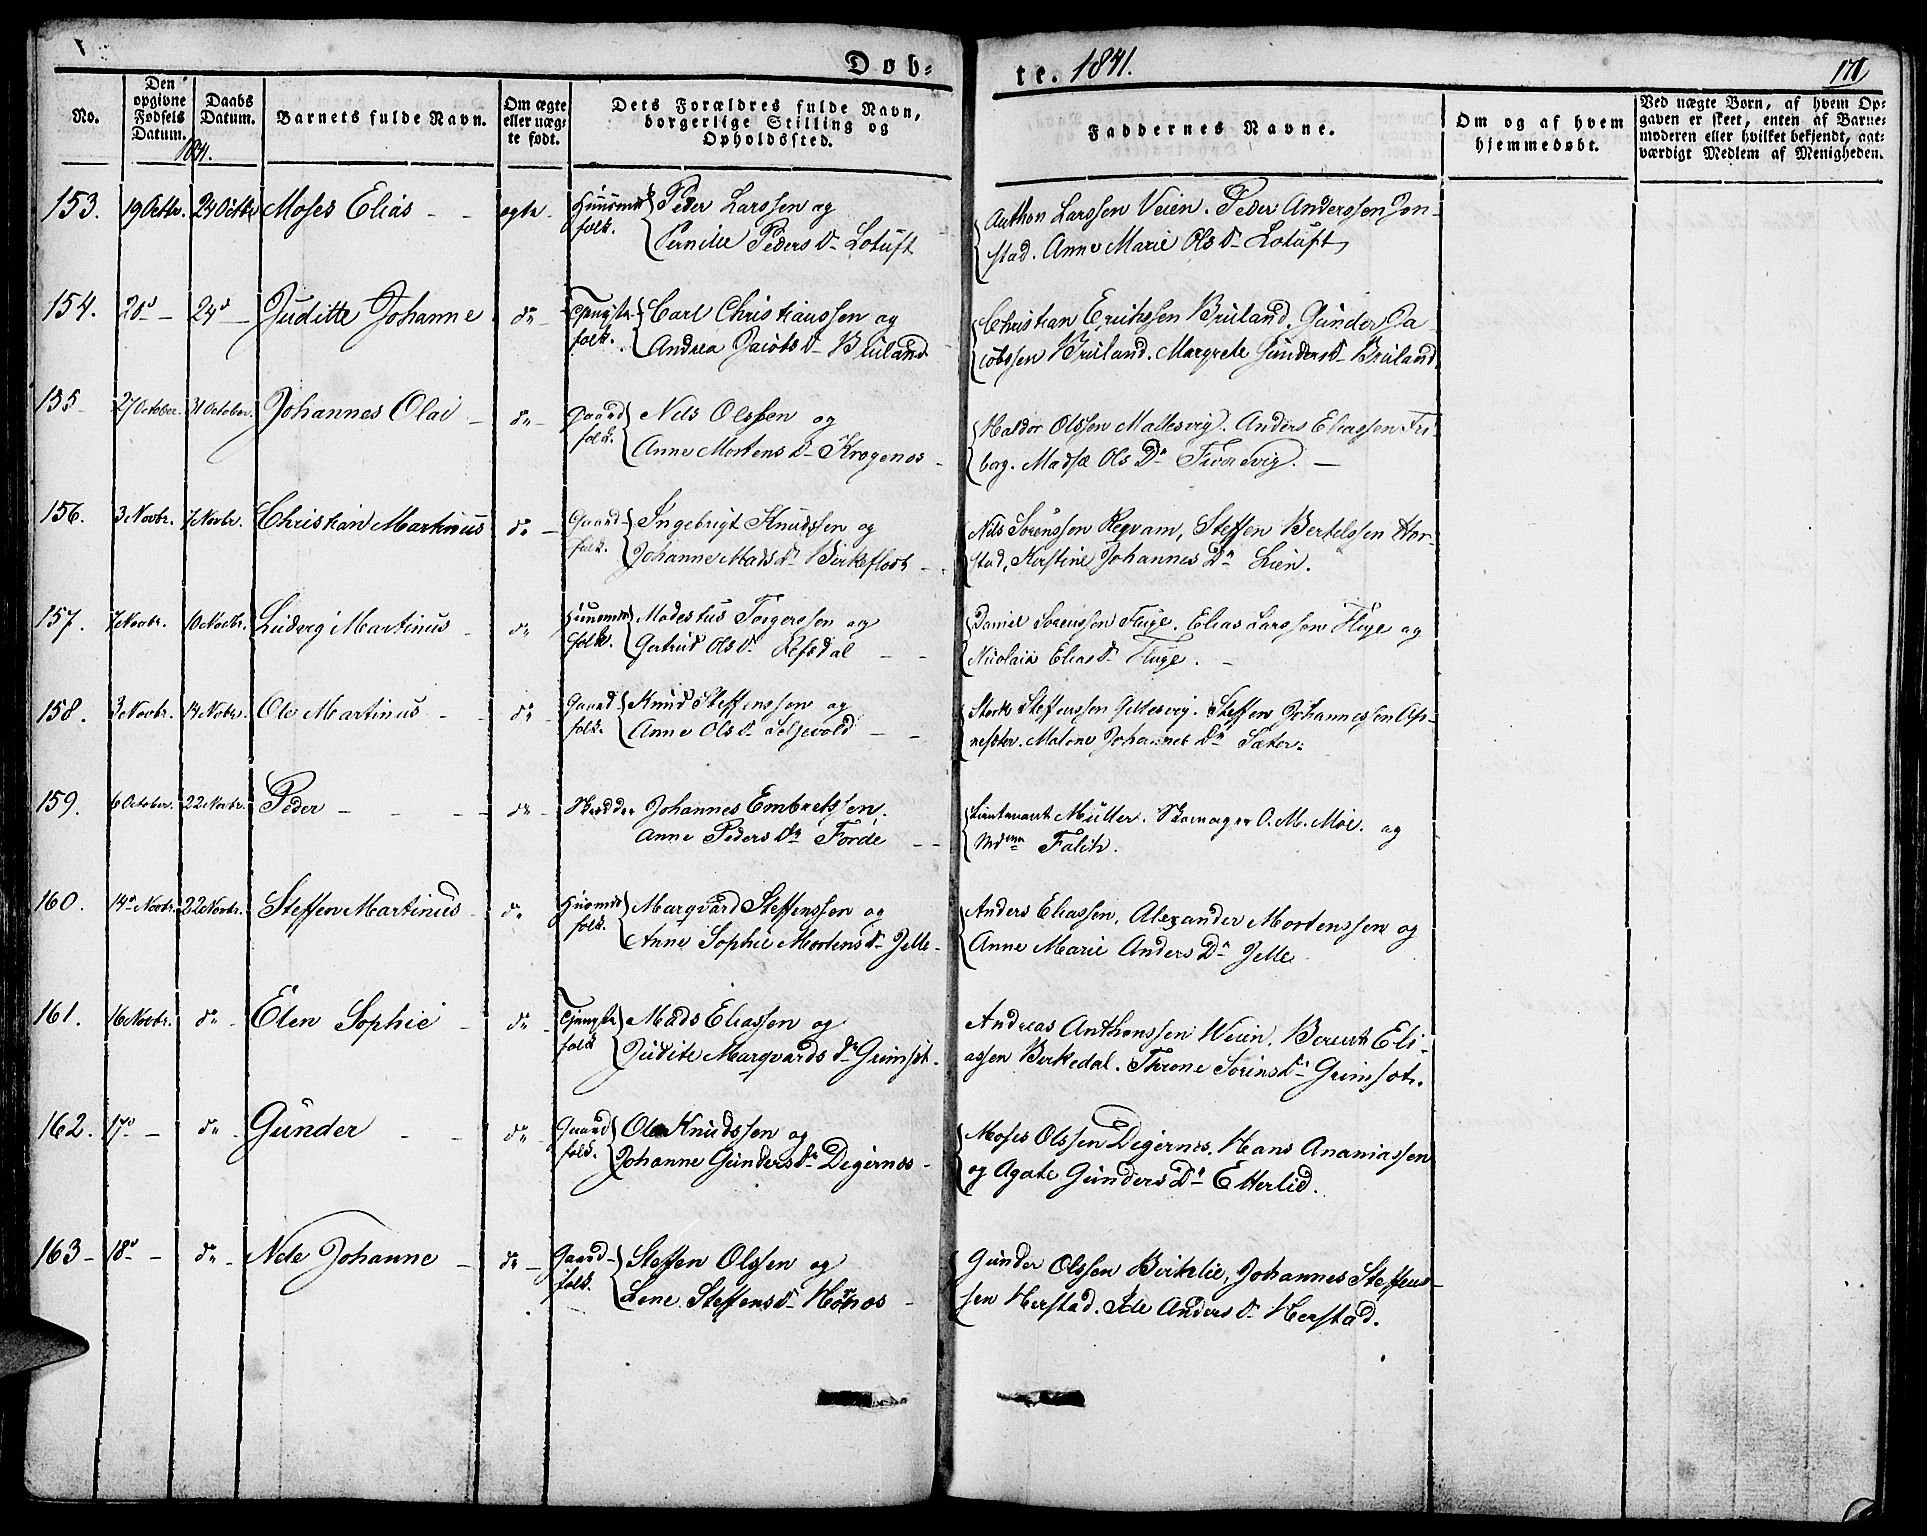 Døb-
te. 1841.
171
No.
Den opgivne Fødsels Datum.
Daabs Datum.
1841.
Barnets fulde Navn.
Om ægte eller uægte født.
Dets Forældres fulde Navn, borgerlige Stilling og Opholdssted.
Faddernes Navne.
Om og af hvem hjemmedøbt.
Ved uægte Børn, af hvem Opgaven er skeet, enten af Barnemoderen eller hvilket bekjendt, aatværdigt Medlem af Menigheden.
153. 19 Octbr. 24 Octbr Moses Elias - - ægte - Huusmds folk. Peder Larssen og
Pernille Peders D. Lotuft
Anthon Larssen Veien. Peder Anderssen Jon-
stad. Anne Marie Ols D. Lotuft
154. 20 d - 24 d - Juditte Johanne do - Tjengste folk. Carl Christianssen og
Andrea Jacobs D. Bruland
Christian Erichssen Bruland. Gunder Ja-
cobssen Bruland. Margrete Gunders D. Bruland
155 27 October. 31 October. Johannes Olai - do - Gaard folk. Nils Olssen og
Anne Mortens D. Krogenos -
Haldor Olssen Mallesvig. Anders Eliassen Fri-
borg. Madsæ Ols D. -
156. 3 Novbr. 7 Novbr. Christian Martinus do - Gaard- folk. Ingebrigt Knudssen og
Johanne Mads D. Birkeflodt - -
Nils Sørenssen Reqvam, Steffen Bertelssen Her-
stad, Kirstine Johannes D. Lien.
157. 7 Novbr. 10 Novbr. Ludvig Martinus - do Huusmds folk. Modestus Torgerssen og
Gertrud Ols D. Refsdal - -
Daniel Sørenssen Fluge. Elias Larssen Fluge og
Nicolaia Elias D. Fluge. -
158. 3 Novbr. 14 Nobr. Ole Martinus - - do - Gaard folk. Knud Steffenssen og
Anne Ols D. Seljevold - -
Sterke Steffenssen. Steffen Johannessen
Malene Johannes D. Sæter.
159. 6 October. 22 Novbr. Peder - - - - do - Skrædder Johannes Embretssen.
Anne Peders D. Førde - -
Lieutenant Müller. Skomager O. M. Moe. og
Mdme Falch.
160. 14 d Novbr. 22 Novbr. Steffen Martinus - do Huusmds folk. Marqvard Steffenssen og
Anne Sophie Mortens D. Jelle -
Anders Eliassen, Alexander Mortenssen og
Anne Marie Anders D. Jelle
161. 16 Novbr. do - Elen Sophie - do - Tjengste folk Mads Eliassen og
Judite Marqvards D. Grimset -
Andreas Anthonssen Weien. Berent Eli-
assen Birkedal. Throne Sørens D. Grimset.
162. 17 d - do - Gunder - - do - Gaard folk. Ole Knudssen og
Johanne Gunders D. Degernes -
Moses Olssen Degernes, Hans Ananiassen
og Agate Gunders D. Etterlid.
163 - 18 d - do - Nele Johanne - do - Gaard- folk. Steffen Olssen og
Lene Steffens D. Hornos -
Gunder Olssen Birkelie, Johannes Steffens-
sen Herstad. Ide Anders D. Herstad.